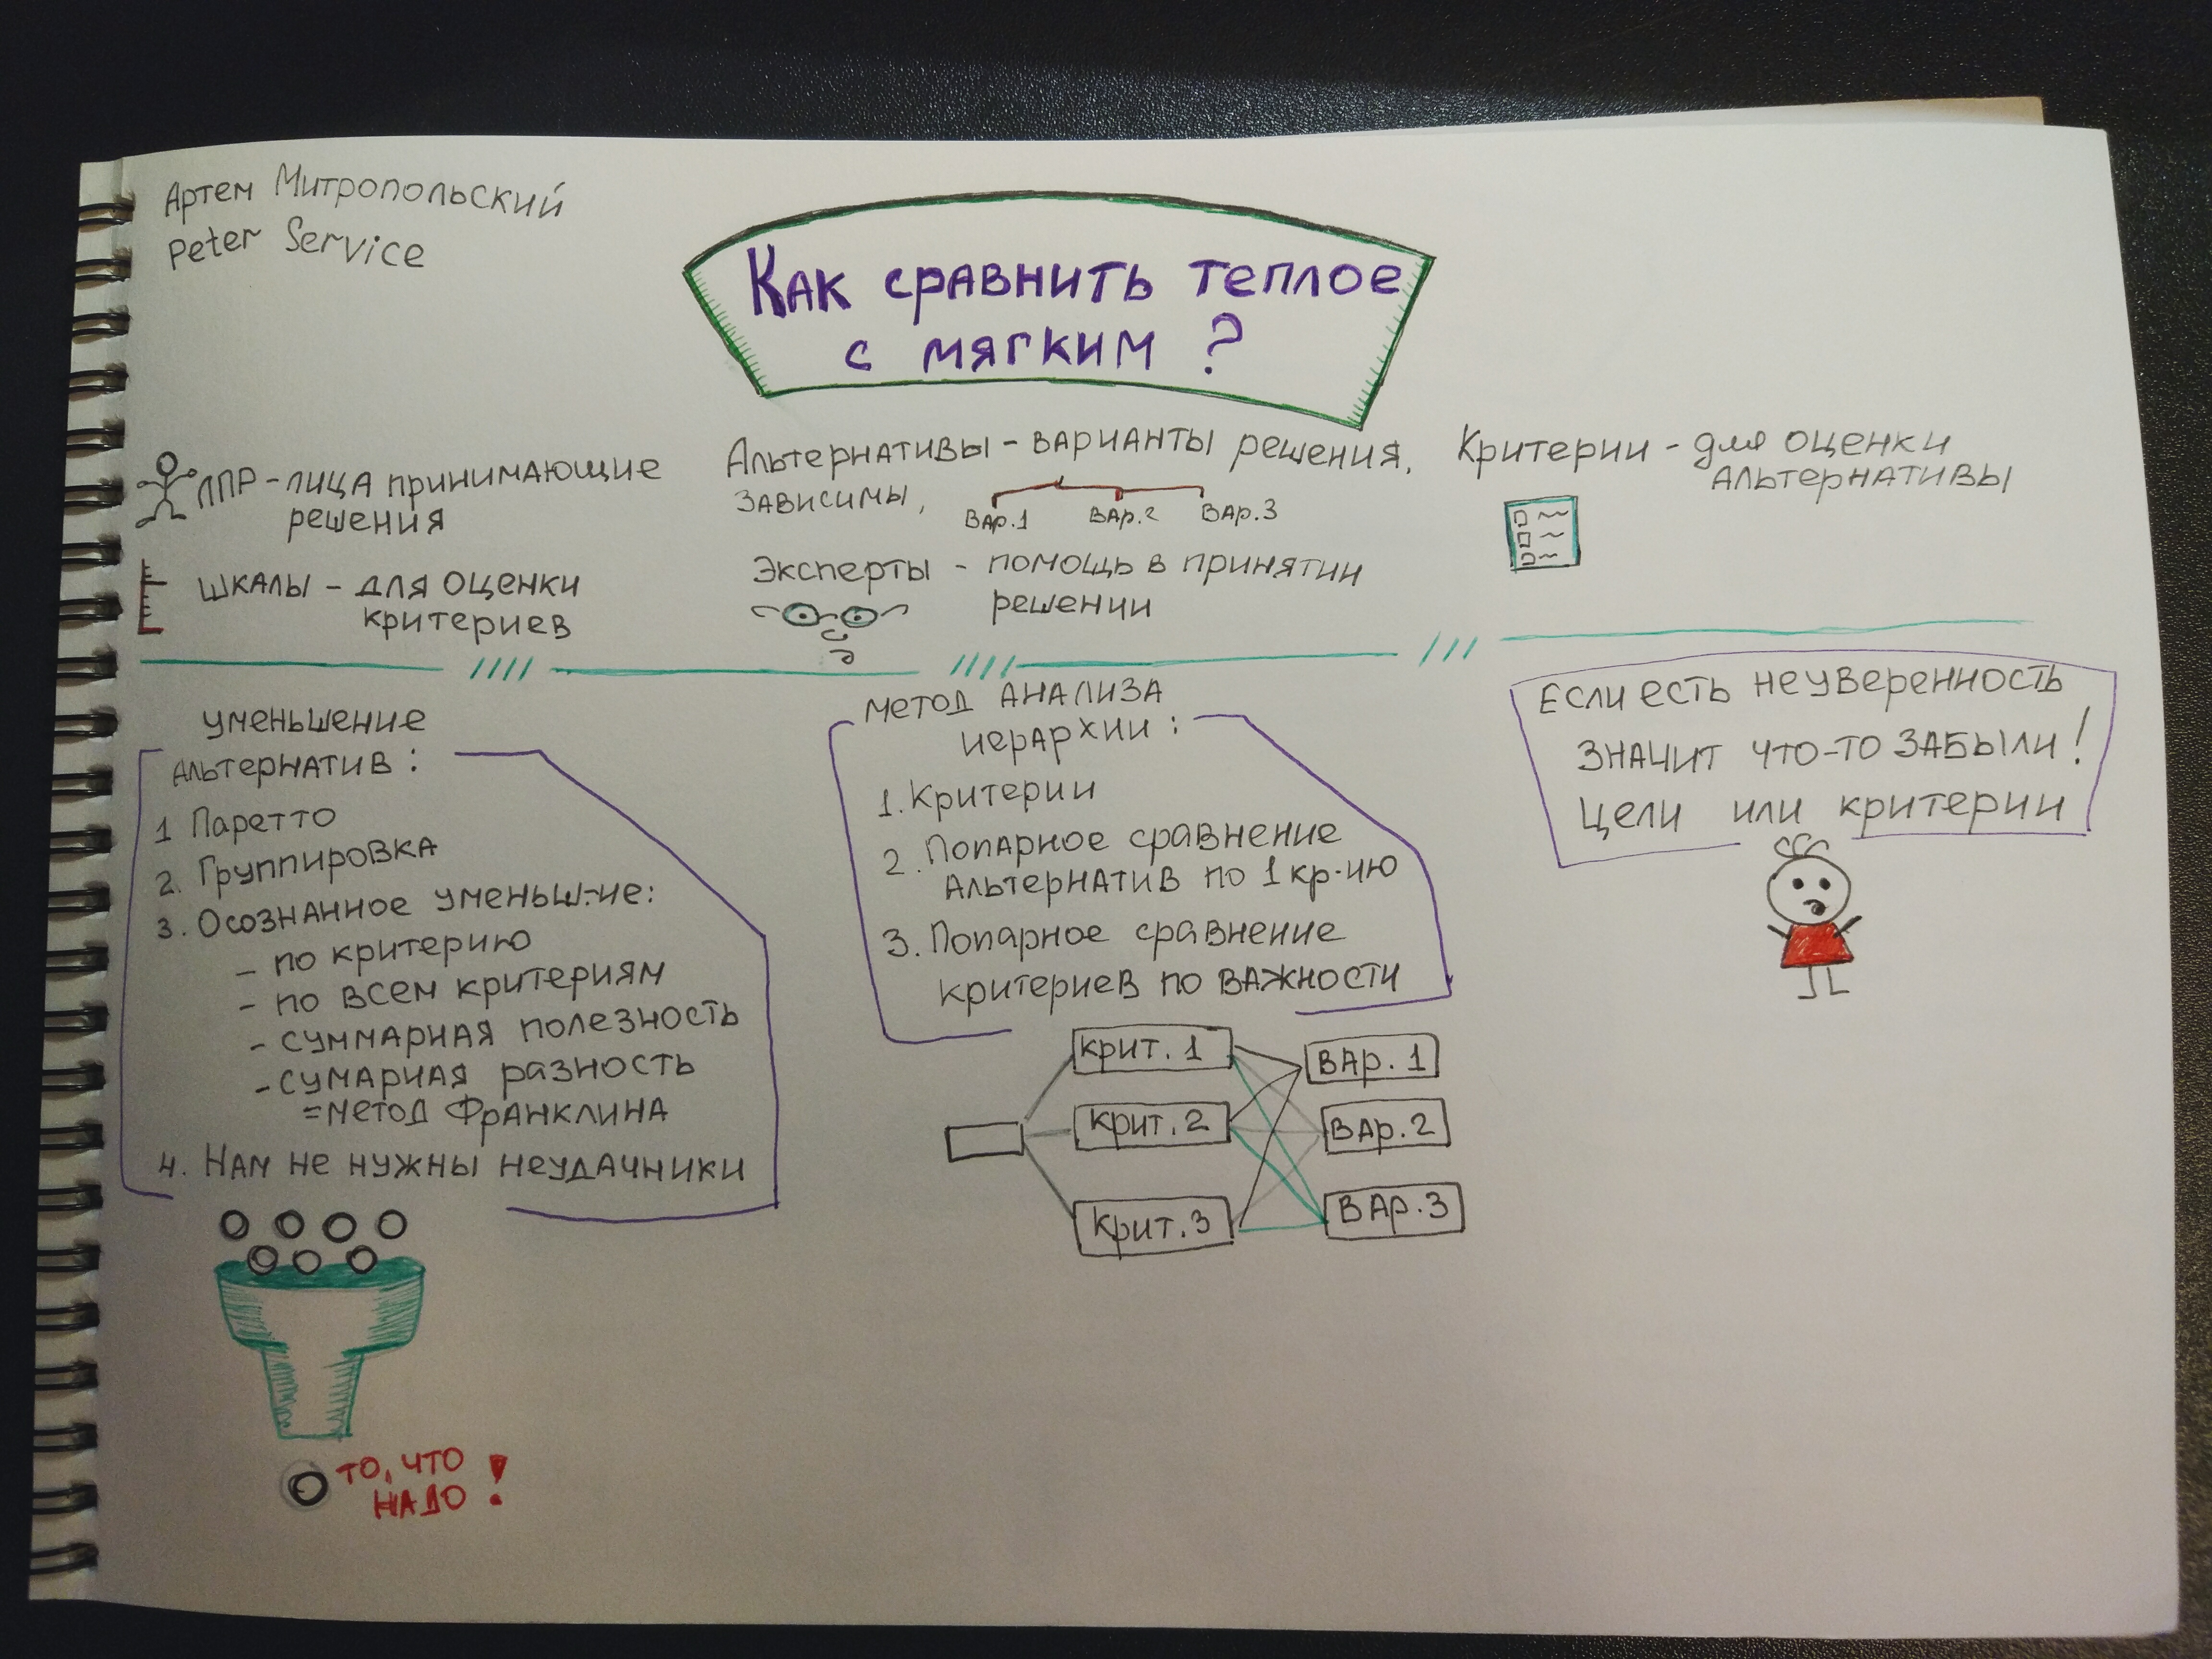 Артем Митропольский
Peter Service
Как сравнить теплое
с мягким ?
ЛПР - лица принимающие
решения
Альтернативы - варианты решения,
зависимы,
Вар.1 Вар.2 Вар.3
Критерии - для оценки
альтернативы
шкалы - для оценки
критериев
Эксперты - помощь в принятии
решении
уменьшение
альтернатив :
1 Паретто
2. Группировка
3. Осознанное уменьш-ие:
- по критерию
- по всем критериям
- суммарная полезность
- сумарная разность
= метод Франклина
4. Нам не нужны неудачники
то, что
надо !
метод анализа
иерархии :
1. Критерии
2. Попарное сравнение
альтернатив по 1 кр-ию
3. Попарное сравнение
критериев по важности
крит. 1
крит. 2
крит. 3
Вар. 1
Вар. 2
Вар. 3
Если есть неуверенность
значит что-то забыли !
Цели или критерии